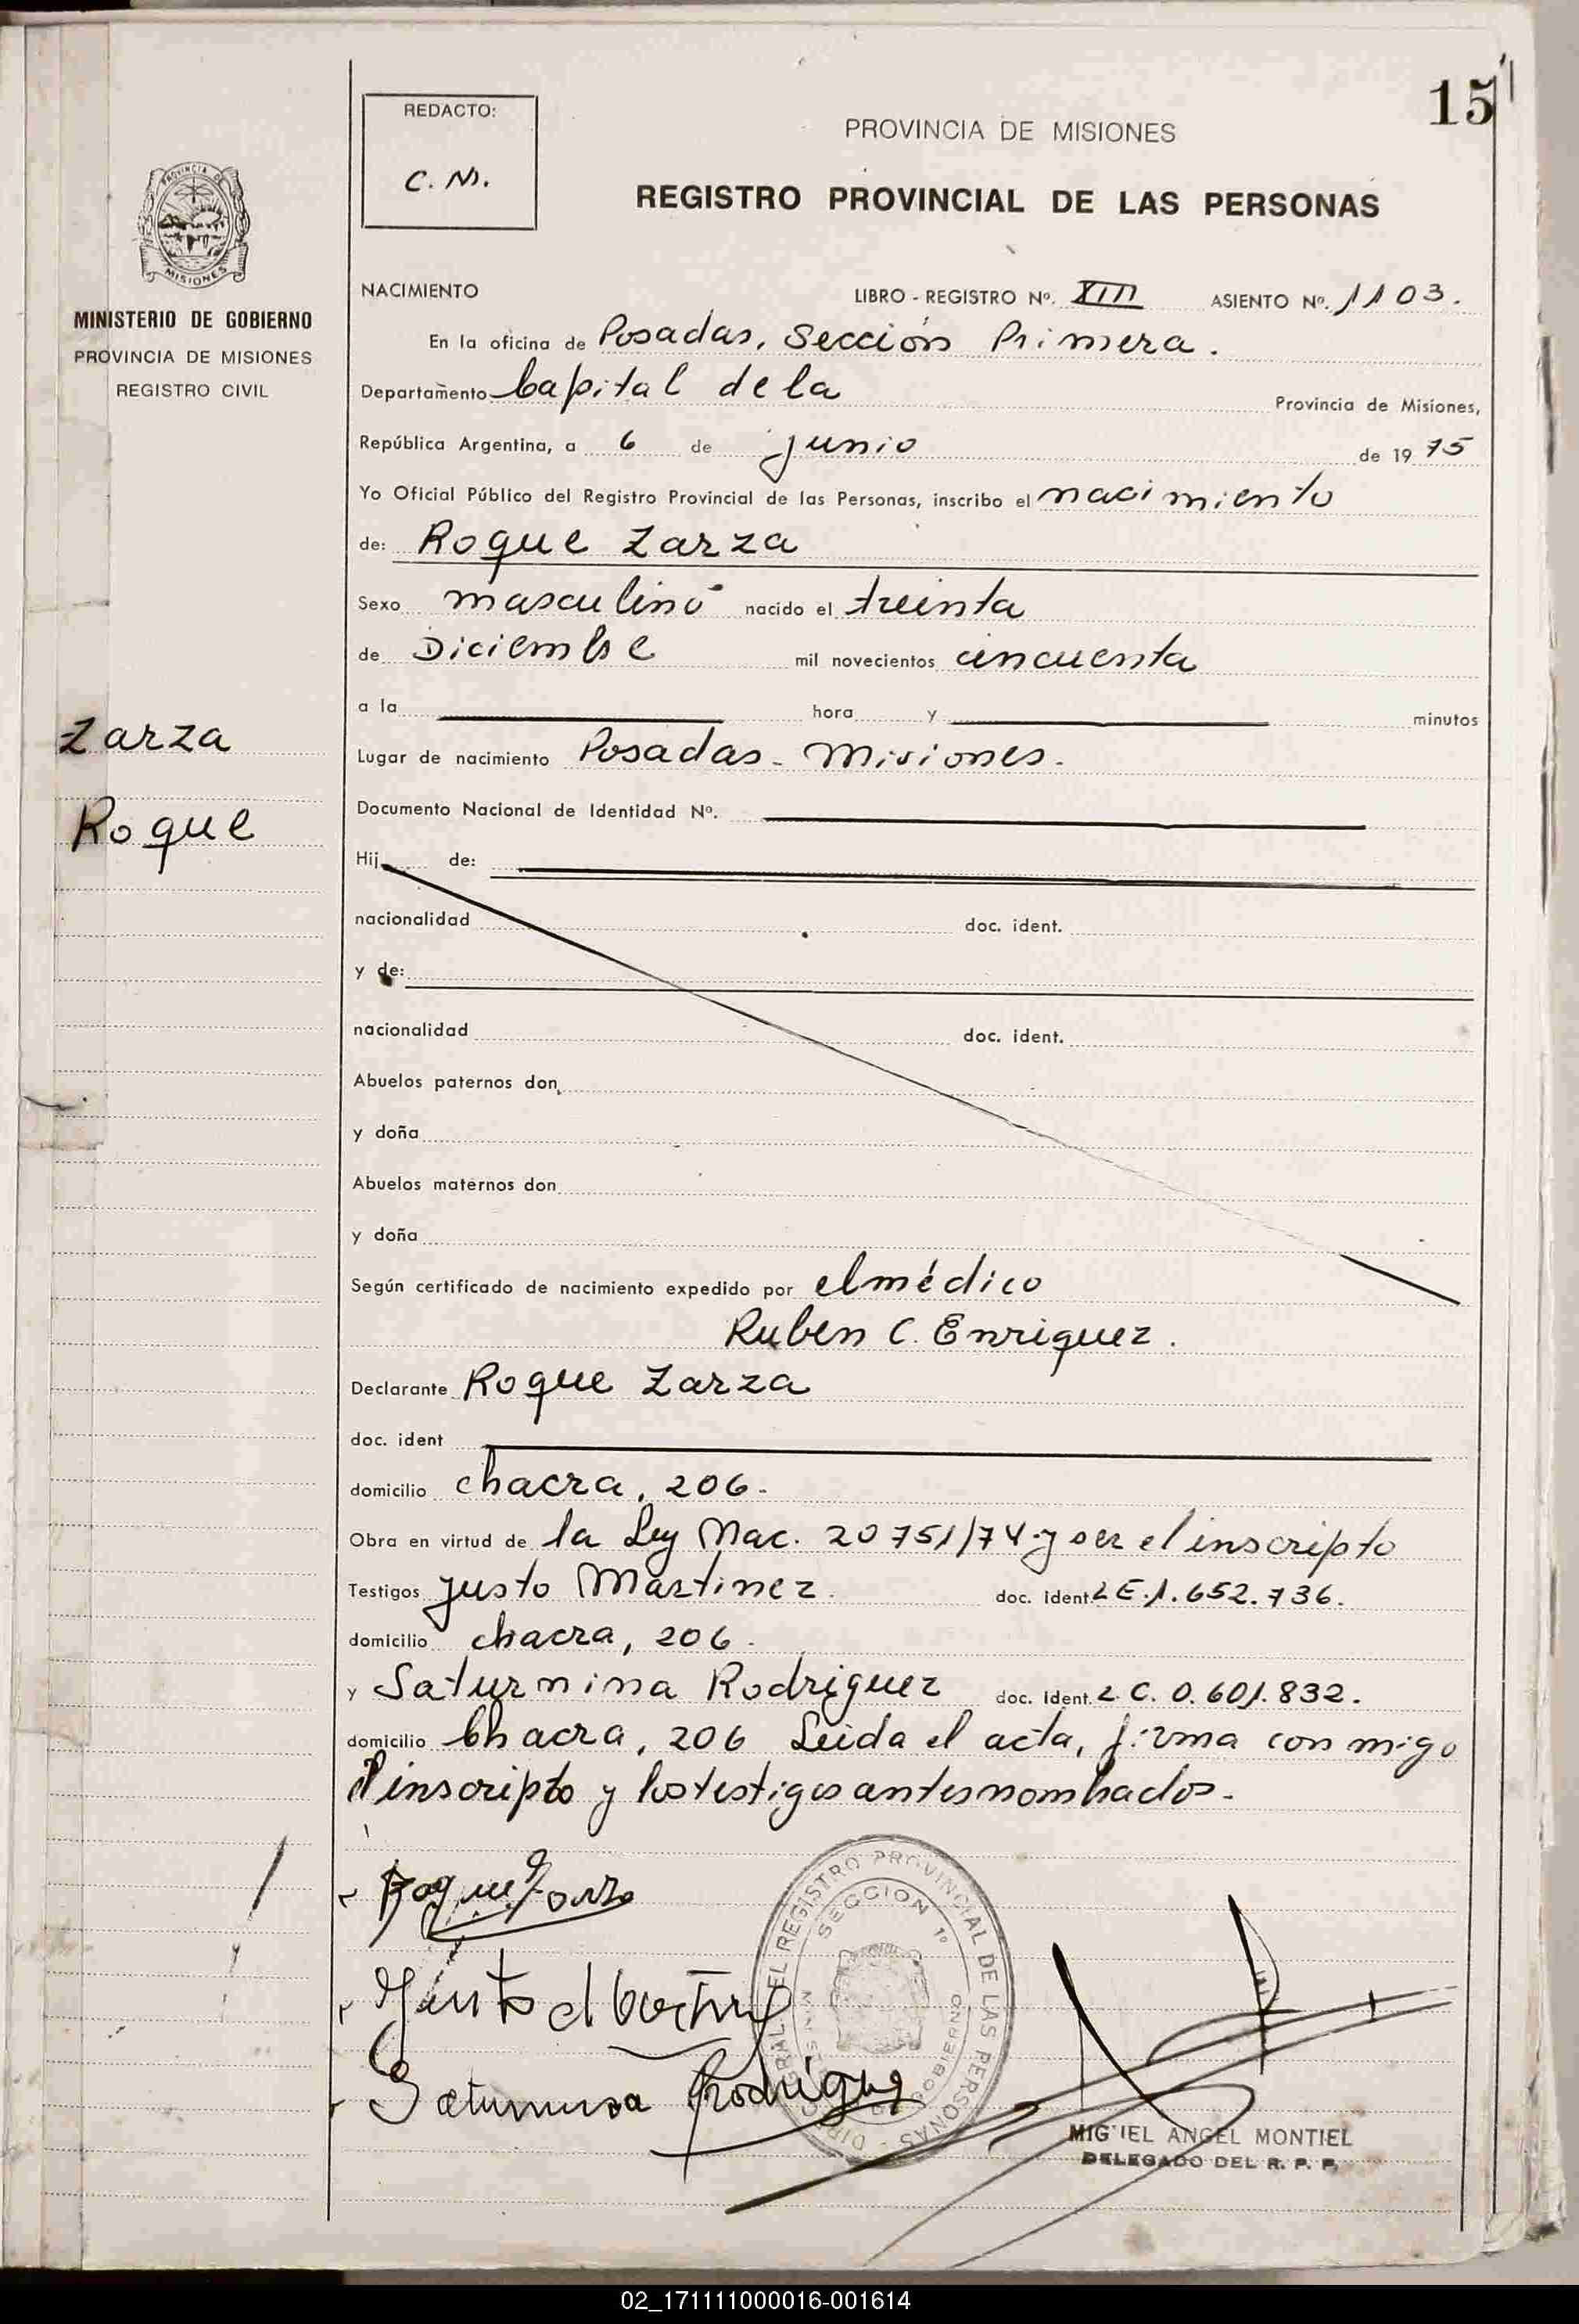 15
REDACTO:
C. M.
PROVINCIA DE MISIONES
REGISTRO PROVINCIAL DE LAS PERSONAS
PROVINCIA DE
MISIONES
MINISTERIO DE GOBIERNO
PROVINCIA DE MISIONES
REGISTRO CIVIL
NACIMIENTO LIBRO - REGISTRO Nº. XIII ASIENTO Nº. 1103.
En la oficina de Posadas, Sección Primera.
Departamento Capital de la Provincia de Misiones,
República Argentina, a 6 de junio de 1975
Yo Oficial Público del Registro Provincial de las Personas, inscribo el nacimiento
de: Roque Zarza
Sexo masculino nacido el treinta
de Diciembre mil novecientos cincuenta
a la hora y minutos
Zarza
Lugar de nacimiento Posadas - Misiones.
Roque
Documento Nacional de Identidad Nº.
Hij de:
nacionalidad doc. ident.
y de:
nacionalidad doc. ident.
Abuelos paternos don
y doña
Abuelos maternos don
y doña
Según certificado de nacimiento expedido por el médico
Ruben C. Enriquez.
Declarante Roque Zarza
doc. ident
domicilio chacra, 206.
Obra en virtud de la Ley Nac. 20751/74 y ser el inscripto
Testigos Justo Martinez. doc. ident L E. 1.652.736.
domicilio chacra, 206.
y Saturnina Rodriguez doc. ident. L. C. 0.601.832.
domicilio Chacra, 206 Leida el acta, firma conmigo
el inscripto y los testigos antes nombrados.
Roque Zarza
Justo Martinez
Saturnina Rodrigue
REGISTRO PROVINCIAL DE LAS PERSONAS
SECCION 1º
GOBIERNO
MIGUEL ANGEL MONTIEL
DELEGADO DEL R. P. P.
02_171111000016-001614